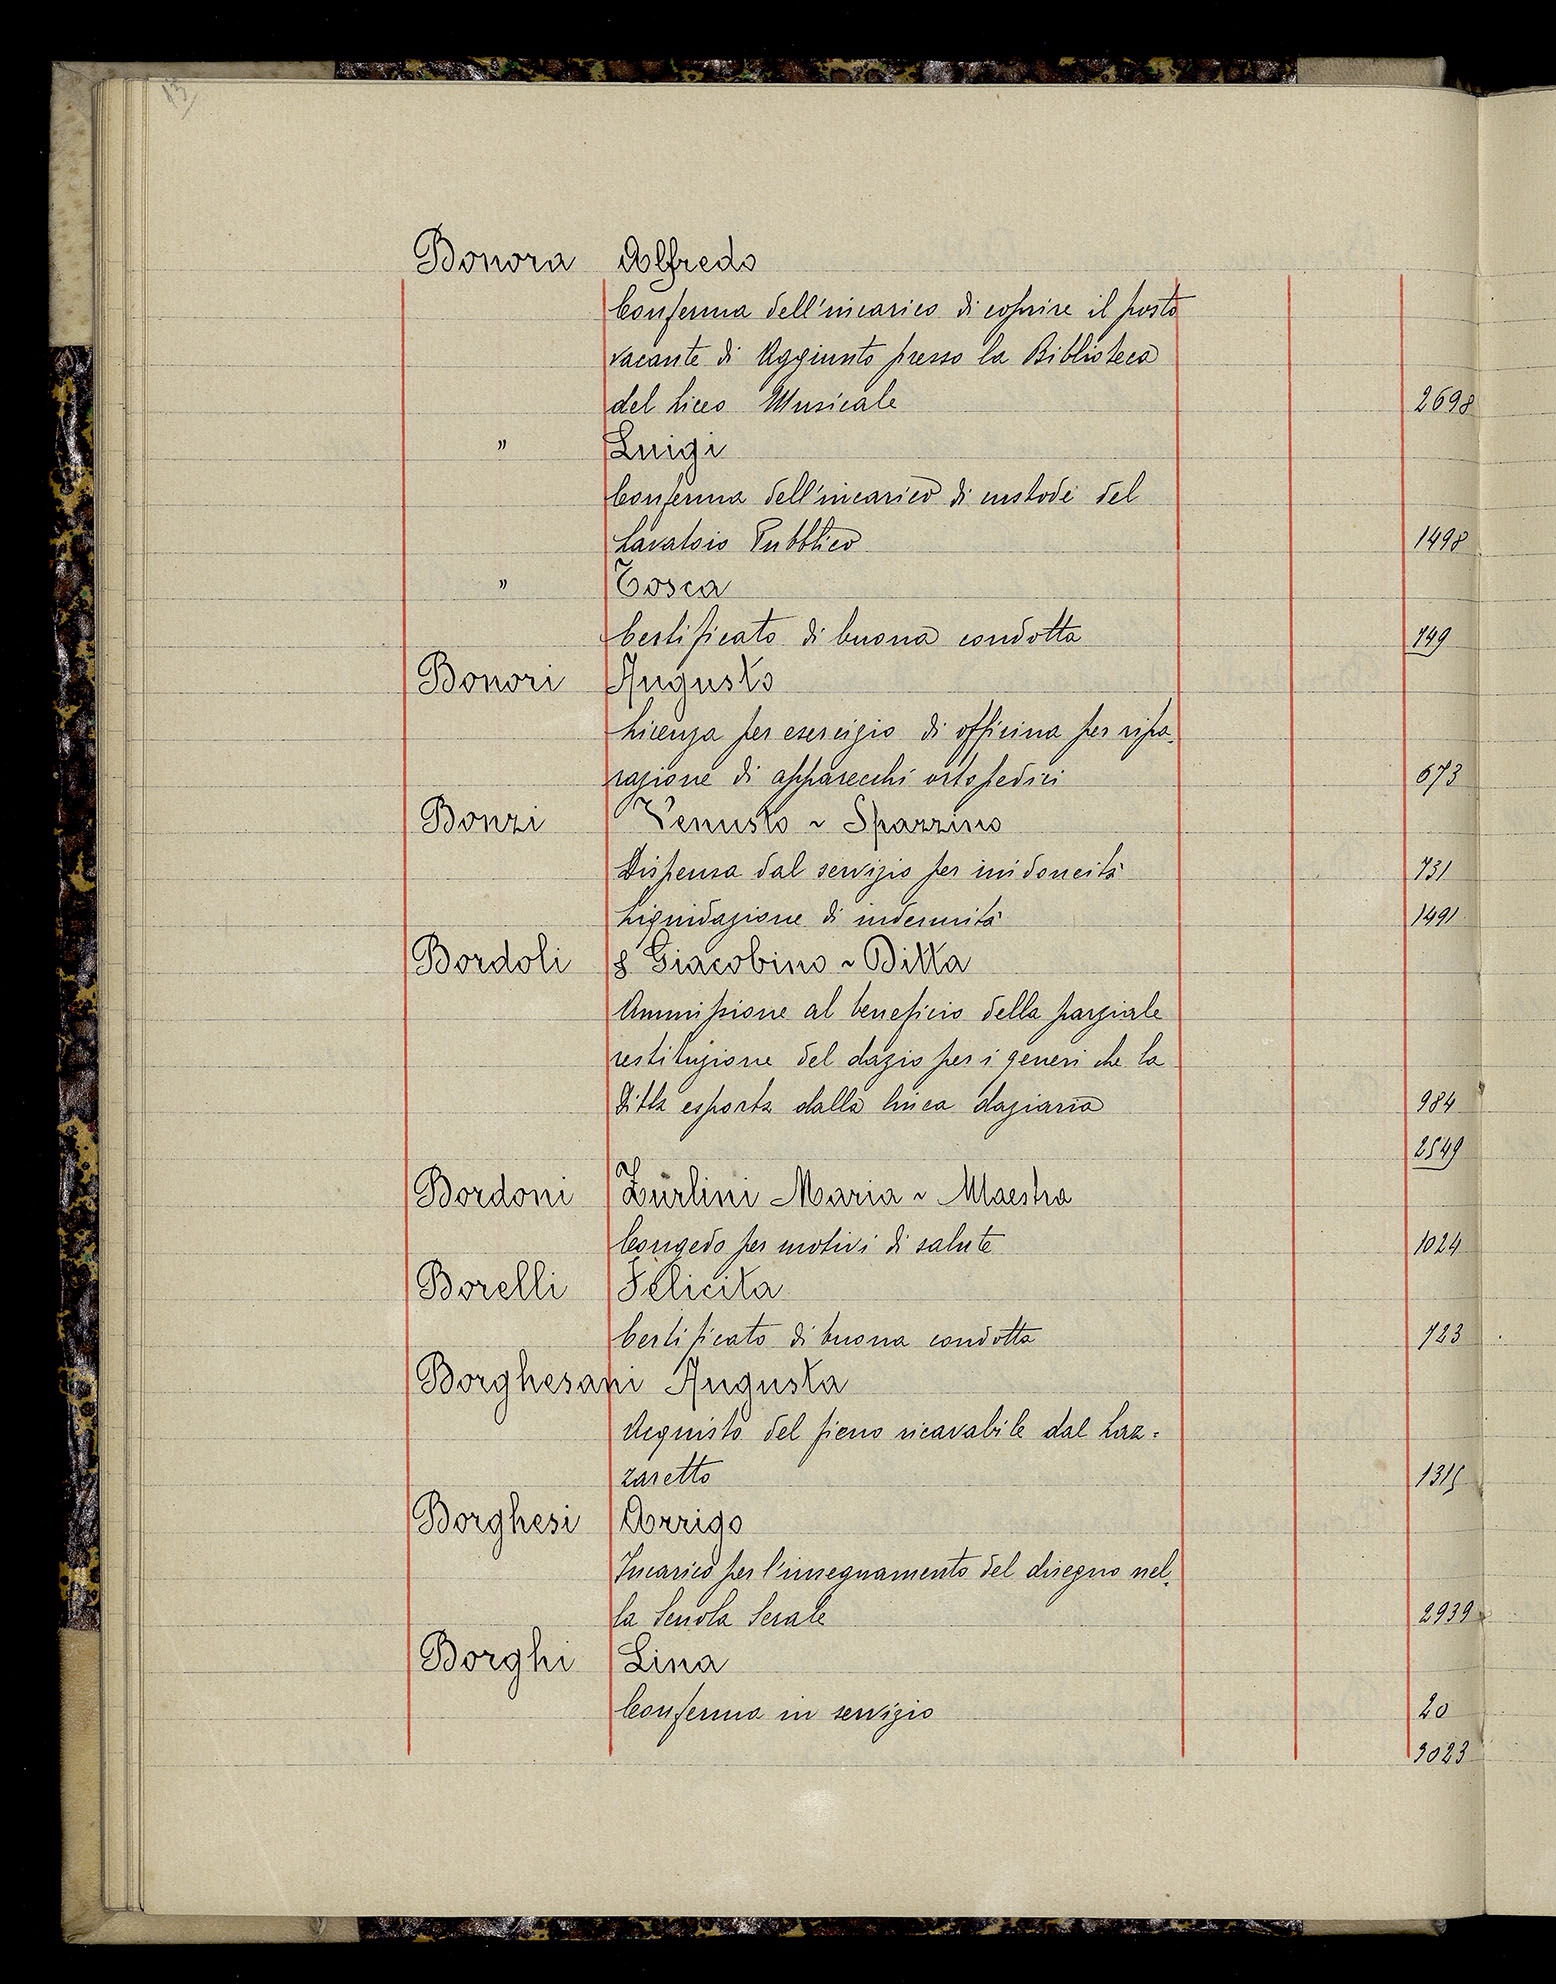 13
Bonora Alfredo
Conferma dell'incarico di coprire il posto
vacante di Aggiunto presso la Biblioteca
del Liceo Musicale 2698
" Luigi
Conferma dell'incarico di custode del
Lavatoio Pubblico 1498
" Tosca
Certificato di buona condotta 149
Bonori Augusto
Licenza per esercizio di officina per ripa-
razione di apparecchi ortopedici 673
Bonzi Venusto ~ Spazzino
Dispensa dal servizio per inidoneità 731
Liquidazione di indennità 1491
Bordoli & Giacobino ~ Ditta
Ammissione al beneficio della parziale
restituzione del dazio per i generi che la
Ditta esporta dalla linea daziaria 984
2549
Bordoni Zurlini Maria ~ Maestra
Congedo per motivi di salute 1024
Borelli Felicita
Certificato di buona condotta 723
Borghesani Augusta
Acquisto del fieno ricavabile dal Laz=
zaretto 1315
Borghesi Arrigo
Incarico per l'insegnamento del disegno nel-
la Scuola Serale 2939
Borghi Lina
Conferma in servizio 20
3023